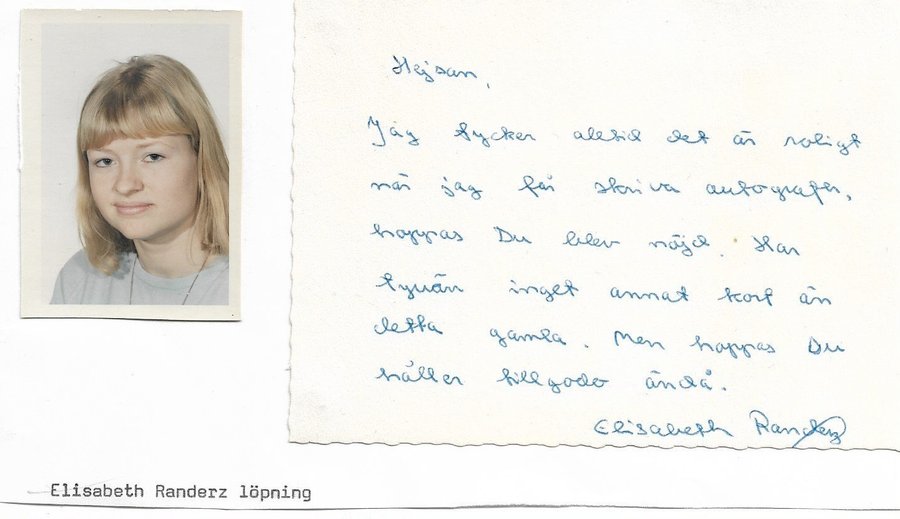 Hejsan,
Jag tycker alltid det är roligt
när jag får skriva autografer,
hoppas Du blev nöjd. Har
tyvärr inget annat kort än
detta gamla. Men hoppas Du
håller tillgodo ändå.
Elisabeth Randerz
Elisabeth Randerz löpning